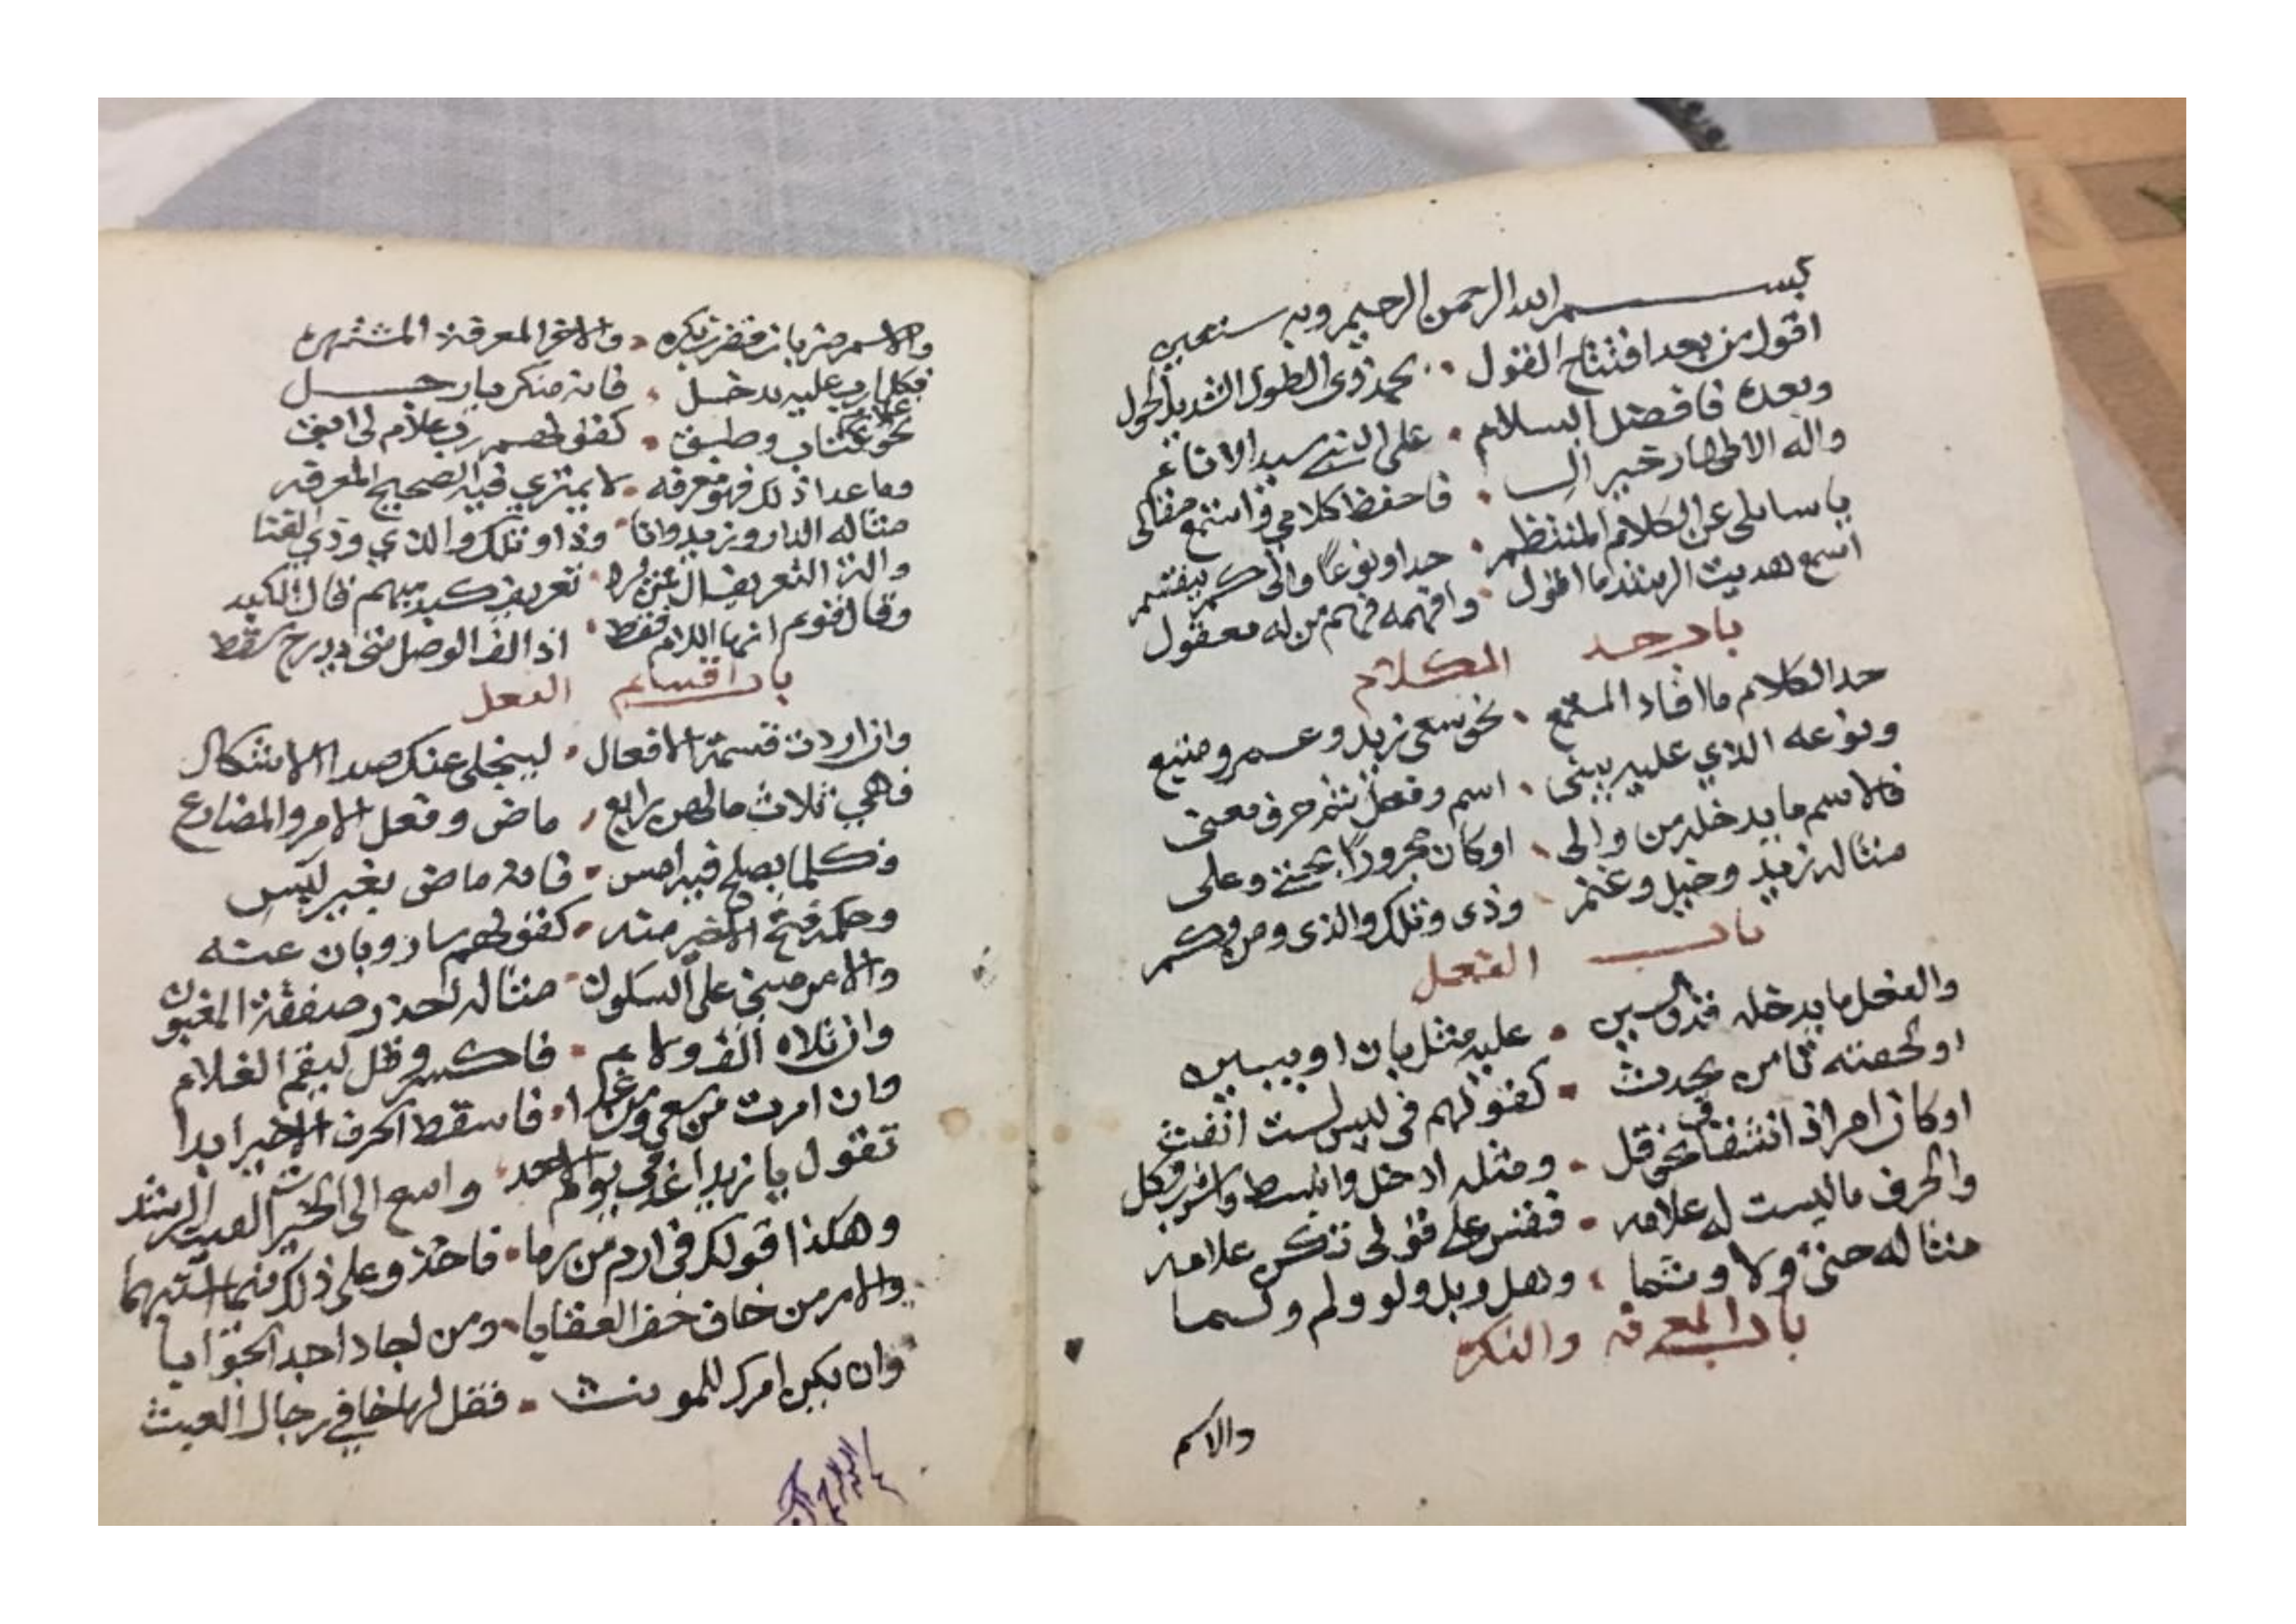 بسم الله الرحمن الرحيم وبه نستعين
اقول من بعد افتتاح القول . بحمد ذى الطول الشديد الحول
وبعده فافضل السلام . على النبي سيد الانام
واله الاطهار خير ال . فاحفظ كلامي واستمع مقالى
يا سايلى عن الكلام المنتظم . حدا ونوعًا والى كم ينقسم
اسمع هديت الرشد ما اقول . وافهمه فهم من له معقول
باب حد الكلام
حد الكلام ما افاد المستمع . نحو سعى زيد وعمرو متبع
ونوعه الذي عليه يبنى . اسم وفعل ثم حرف معنى
فالاسم ما يدخله من والى . او كان مجرورًا بحتى وعلى
مثاله زيد وخيل وغنم . وذى وتلك والذى ومن وكم
باب الفعل
والفعل ما يدخله قد والسين . عليه مثل بان او يبين
او لحقته تا من يحدث . كقولهم فى ليس لست انفث
او كان امرا ذا اشتقاق نحو قل . ومثله ادخل وانبسط واشرب وكل
والحرف ما ليست له علامه . فقس على قولى تكن علامه
مثاله حتى ولا وثما . وهل وبل ولو ولم ولما
باب المعرفه والنكره
والاسم
والاسم ضربان فضرب نكره . والاخر المعرفة المشتهره
فكلما رب عليه يدخل . فانه منكر يا رجل
نحو غلام وكتاب وطبق . كقولهم رب غلام لى ابق
وما عدا ذلك فهو معرفه . لا يمتري فيه الصحيح المعرفه
مثاله الدار وزيد وانا . وذا وتلك والذي وذي الغنا
والة التعريف ال فمن يرد . تعريف كبد مبهم قال الكبد
وقال قوم انها اللام فقط . اذ الف الوصل متى يدرج سقط
باب اقسام الفعل
وان اردت قسمة الافعال . لينجلى عنك صدا الاشكال
فهي ثلاث ما لهن رابع . ماض وفعل الامر والمضارع
فكلما يصلح فيه امس . فانه ماض بغير لبس
وحكمه فتح الاخير منه . كقولهم سار وبان عنه
والامر مبني على السكون . مثاله احذر صفقة المغبون
وان تلاه الف ولام . فاكسر وقل ليقم الغلام
وان امرت من سعى ومن غدا . فاسقط الحرف الاخير ابدا
تقول يا زيد اغد في يوم الاحد . واسع الى الخير لقيت الرشد
وهكذا قولك فى ارم من رما . فاحذ وعلى ذلك فيما استبهما
والامر من خاف خف العقابا . ومن اجاد اجد الجوابا
وان يكن امرك للمونث . فقل لها خافي رجال العبث